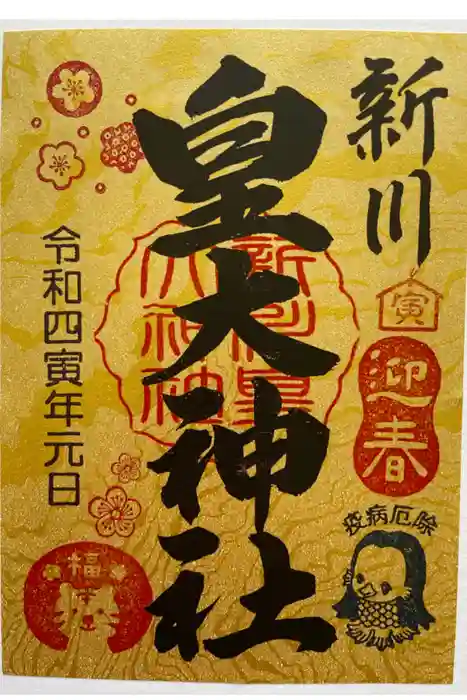 新川
皇大神社
新川皇
大神社
寅
迎春
疫病厄除
令和四寅年元日
福